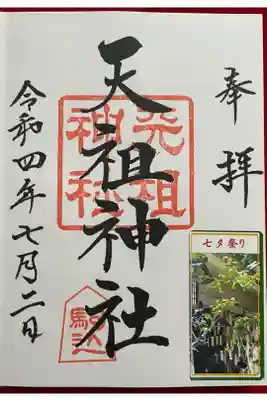 奉拝
七夕祭り
天祖神社
天祖神社
駒込
令和四年七月二日